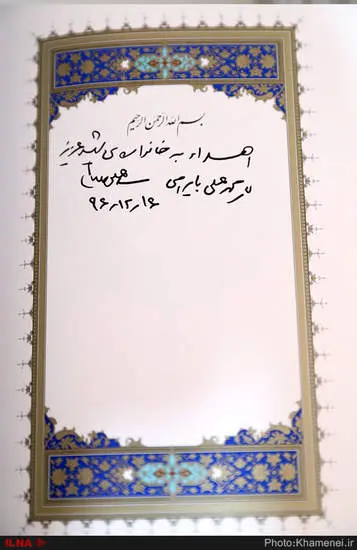 بسم الله الرحمن الرحیم
اهداء به خانواده‌ی شهید عزیز
محمد علی بایرامی
۹۶/۱۲/۱۶
ILNA
Photo:Khamenei.ir